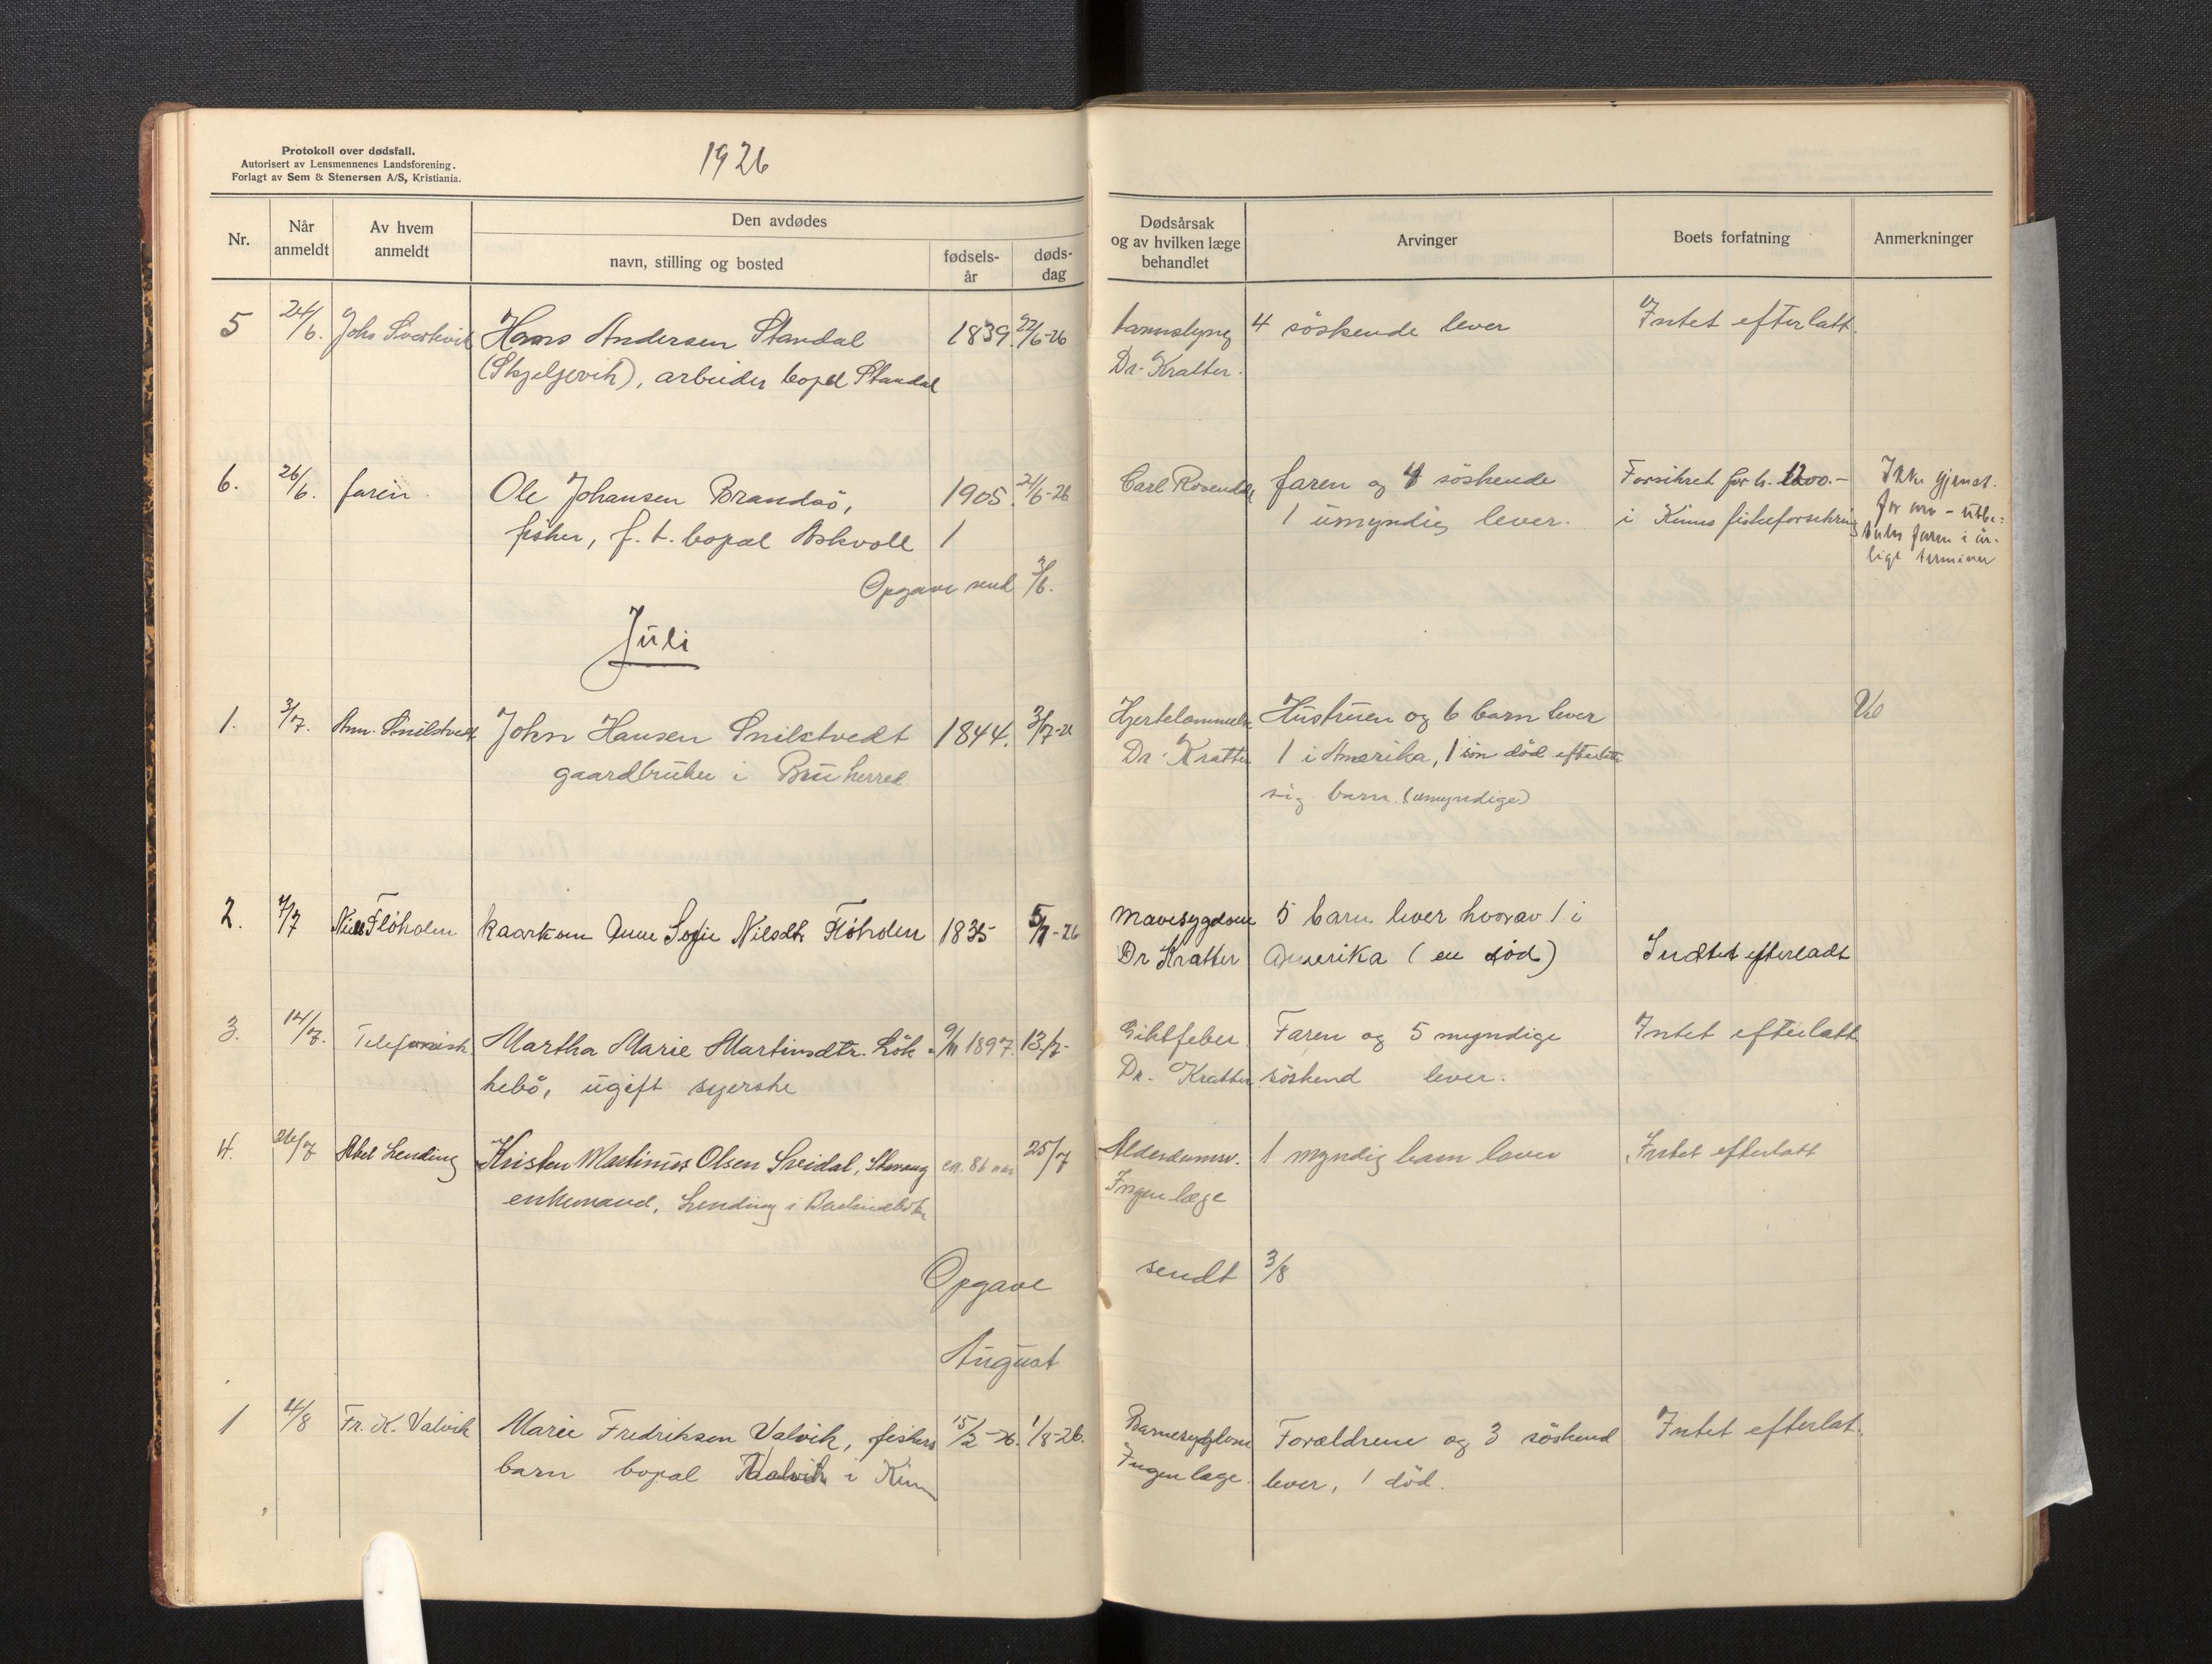 Protokoll over dødsfall.
Autorisert av Lensmennenes Landsforening.
Forlagt av Sem & Stenersen A/S, Kristiania.
1926
Nr.
Når anmeldt
Av hvem anmeldt
Den avdødes
navn, stilling og bosted
fødsels-år
døds-dag
Dødsårsak og av hvilken læge behandlet
Arvinger
Boets forfatning
Anmerkninger
5 24/6. Johs Svortevik Hans Andersen Standal 1839. 22/6-26 4 söskende lever Intet efterlatt.
(Skjeljevik), arbeider bopel Standal Dr. Kratter.
6. 26/6. faren Ole Johansen Brandsö, 1905. 21/6-26 Carl Rosendal faren og 4 söskende Forsikret for kr. 1200.- Ikke gjenst.
fisker, f. t. bopæl Askvoll 1 1 umyndig lever. i Kinns fiskeforsikring for arv - utbe-
tales faren i år-
lige terminer
Opgave send 3/6.
Juli
1. 3/7. Ann. Snilstvedt John Hansen Snilstvedt 1844. 3/7-26 Hjertelammelse Hustruen og 6 barn lever
gaardbruker i Bru herred Dr. Kratter 1 i Amerika, 1 sön död efterlatt
sig barn (umyndige)
2. 7/7 Nils Flöholm kaarkone Anne Sofie Nilsdtr Flöholm 1835 5/7-26 Mavesygdom 5 barn lever hvorav 1 i
Dr Kratter Amerika (en död) Indtet efterladt
3. 14/7. Telefonisk Martha Marie Martinsdtr. Lök- 9/11 1897. 13/7- Giktfeber Faren og 5 myndige Intet efterlatt
kebö, ugift syerske Dr. Kratter söskend lever.
4. 26/7 Abel Lending Kristen Martinus Olsen Sreidal, ca. 86 aar 25/7 Alderdomsv. 1 myndig barn lever Intet efterlatt
enkemand, Lending i Ingen læge
Opgave sendt 3/8
August
1 4/8 Fr. K. Valvik Marie Fredriksen Valvik, fiskers 15/2-26. 1/8-26. Barnesygdom Forældrene og 3 söskend Intet efterlat.
barn bopal Valvik i Kinn Ingen læge. lever, 1 död.